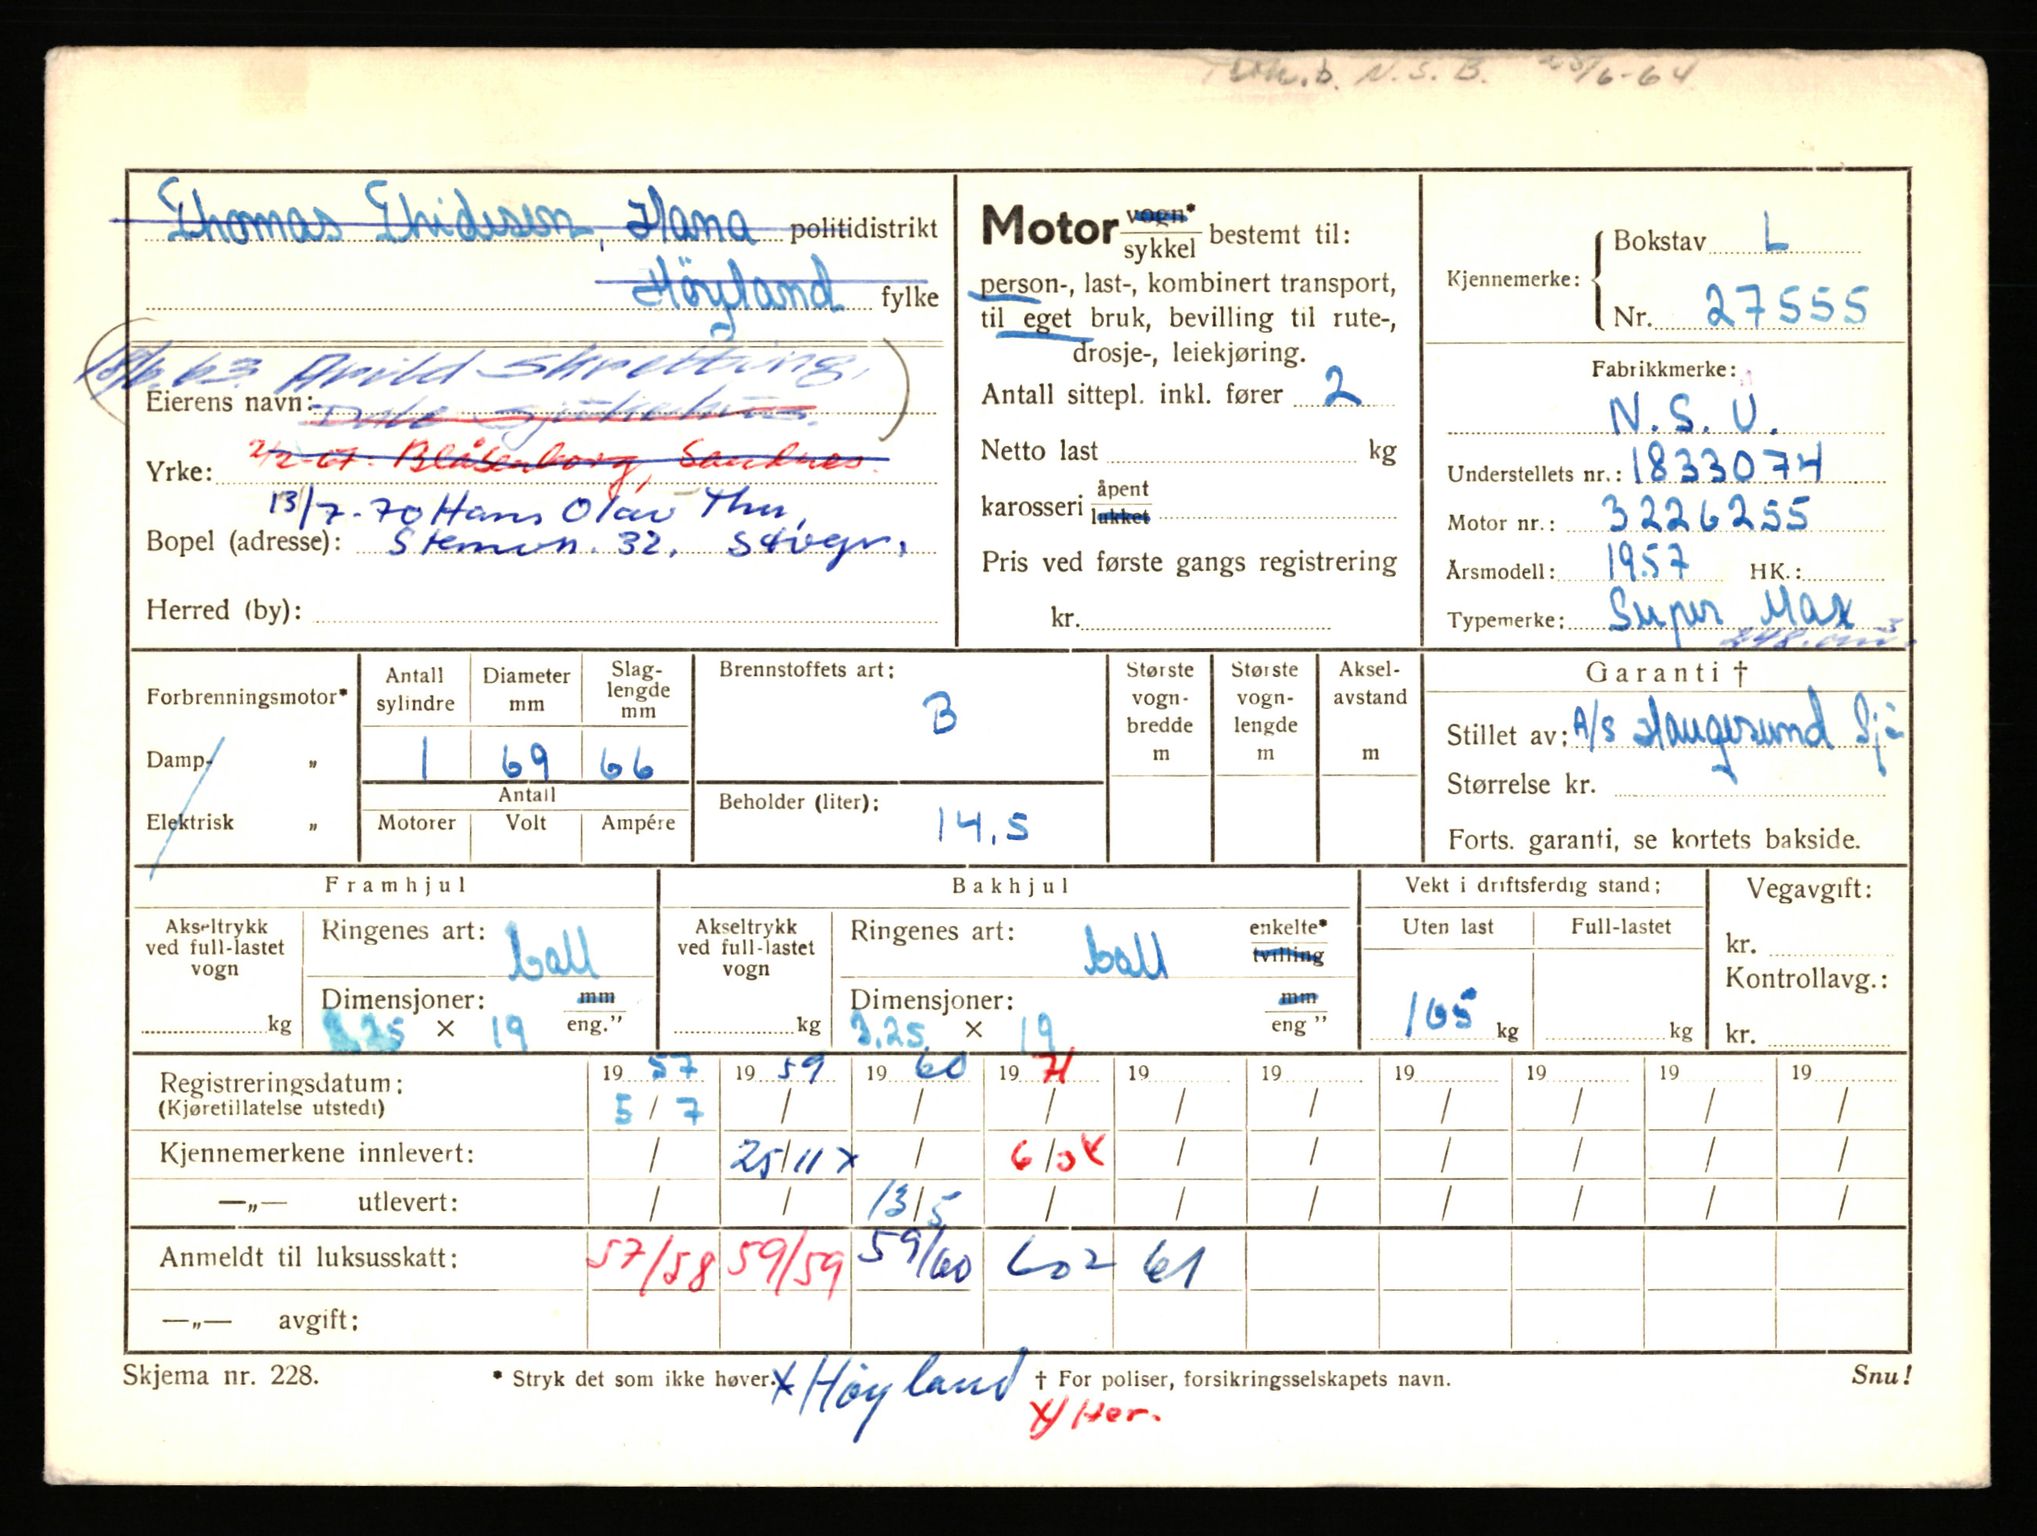 N. S. B. 6-64
Thomas Thidesen, Hana politidistrikt
Höyland fylke
Arild Skretting,
Eierens navn:
Yrke: 2/2-67. Blåsenborg, Sandnes.
13/7-70 Hans Olav Thu,
Bopel (adresse): Stemvn. 32, Stvgr,
Herred (by):
Motor vogn* sykkel bestemt til:
person-, last-, kombinert transport,
til eget bruk, bevilling til rute-,
drosje-, leiekjøring.
Antall sittepl. inkl. fører 2
Netto last kg
karosseri åpent lukket
Pris ved første gangs registrering
kr.
Kjennemerke: Bokstav L
Nr. 27555
Fabrikkmerke:
N. S. U.
Understellets nr.: 1833074
Motor nr.: 3226255
Årsmodell: 1957 HK.:
Typemerke: Super Max
248 cm³
Forbrenningsmotor*
Damp- „
Elektrisk „
Antall sylindre 1
Diameter mm 69
Slag-lengde mm 66
Antall
Motorer Volt Ampére
Brennstoffets art: B
Beholder (liter): 14,5
Største vogn-bredde m
Største vogn-lengde m
Aksel-avstand m
Garanti †
Stillet av: A/S Haugesund Sjö
Størrelse kr.
Forts. garanti, se kortets bakside.
Framhjul
Akseltrykk ved full-lastet vogn kg
Ringenes art: ball
Dimensjoner: 3.25 × 19 mm eng."
Bakhjul
Akseltrykk ved full-lastet vogn kg
Ringenes art: ball enkelte* tvilling
Dimensjoner: 3.25 × 19 mm eng "
Vekt i driftsferdig stand:
Uten last Full-lastet
165 kg kg
Vegavgift:
kr.
Kontrollavg.:
kr.
Registreringsdatum: 19 57 19 59 19 60 19 71 19 19 19 19 19 19
(Kjøretillatelse utstedt) 5/7 / / / / / / / / /
Kjennemerkene innlevert: / 25/11 x / 6/ x / / / / / /
—„— utlevert: / / 13/5 / / / / / / /
Anmeldt til luksusskatt: 57/58 59/59 59/60 602 61
—„— avgift:
Skjema nr. 228. * Stryk det som ikke høver. x/Høyland † For poliser, forsikringsselskapets navn. Snu!
x/ Her.